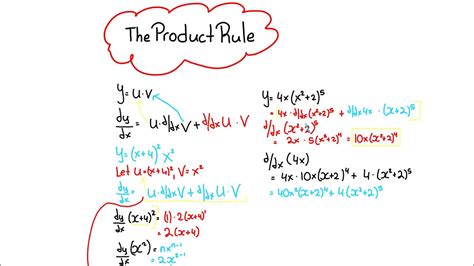 The Product Rule
y = u·v
dy/dx = u·d/dx v + d/dx u·v
y = (x+4)² x²
Let u = (x+4)², v = x²
dy/dx = u·d/dx v + d/dx u·v
dy/dx (x+4)² = (1)·2(x+4)¹
= 2(x+4)
dy/dx (x²) = nxⁿ⁻¹
= 2x²⁻¹
y = 4x(x²+2)⁵
= 4x·d/dx(x²+2)⁵ + d/dx 4x·(x+2)⁵
d/dx (x²+2)⁵
= 2x·5(x²+2)⁴ = 10x(x²+2)⁴
d/dx (4x)
= 4x·10x(x²+2)⁴ + 4·(x²+2)⁵
= 40x²(x+2)⁴ + 4(x²+2)⁵